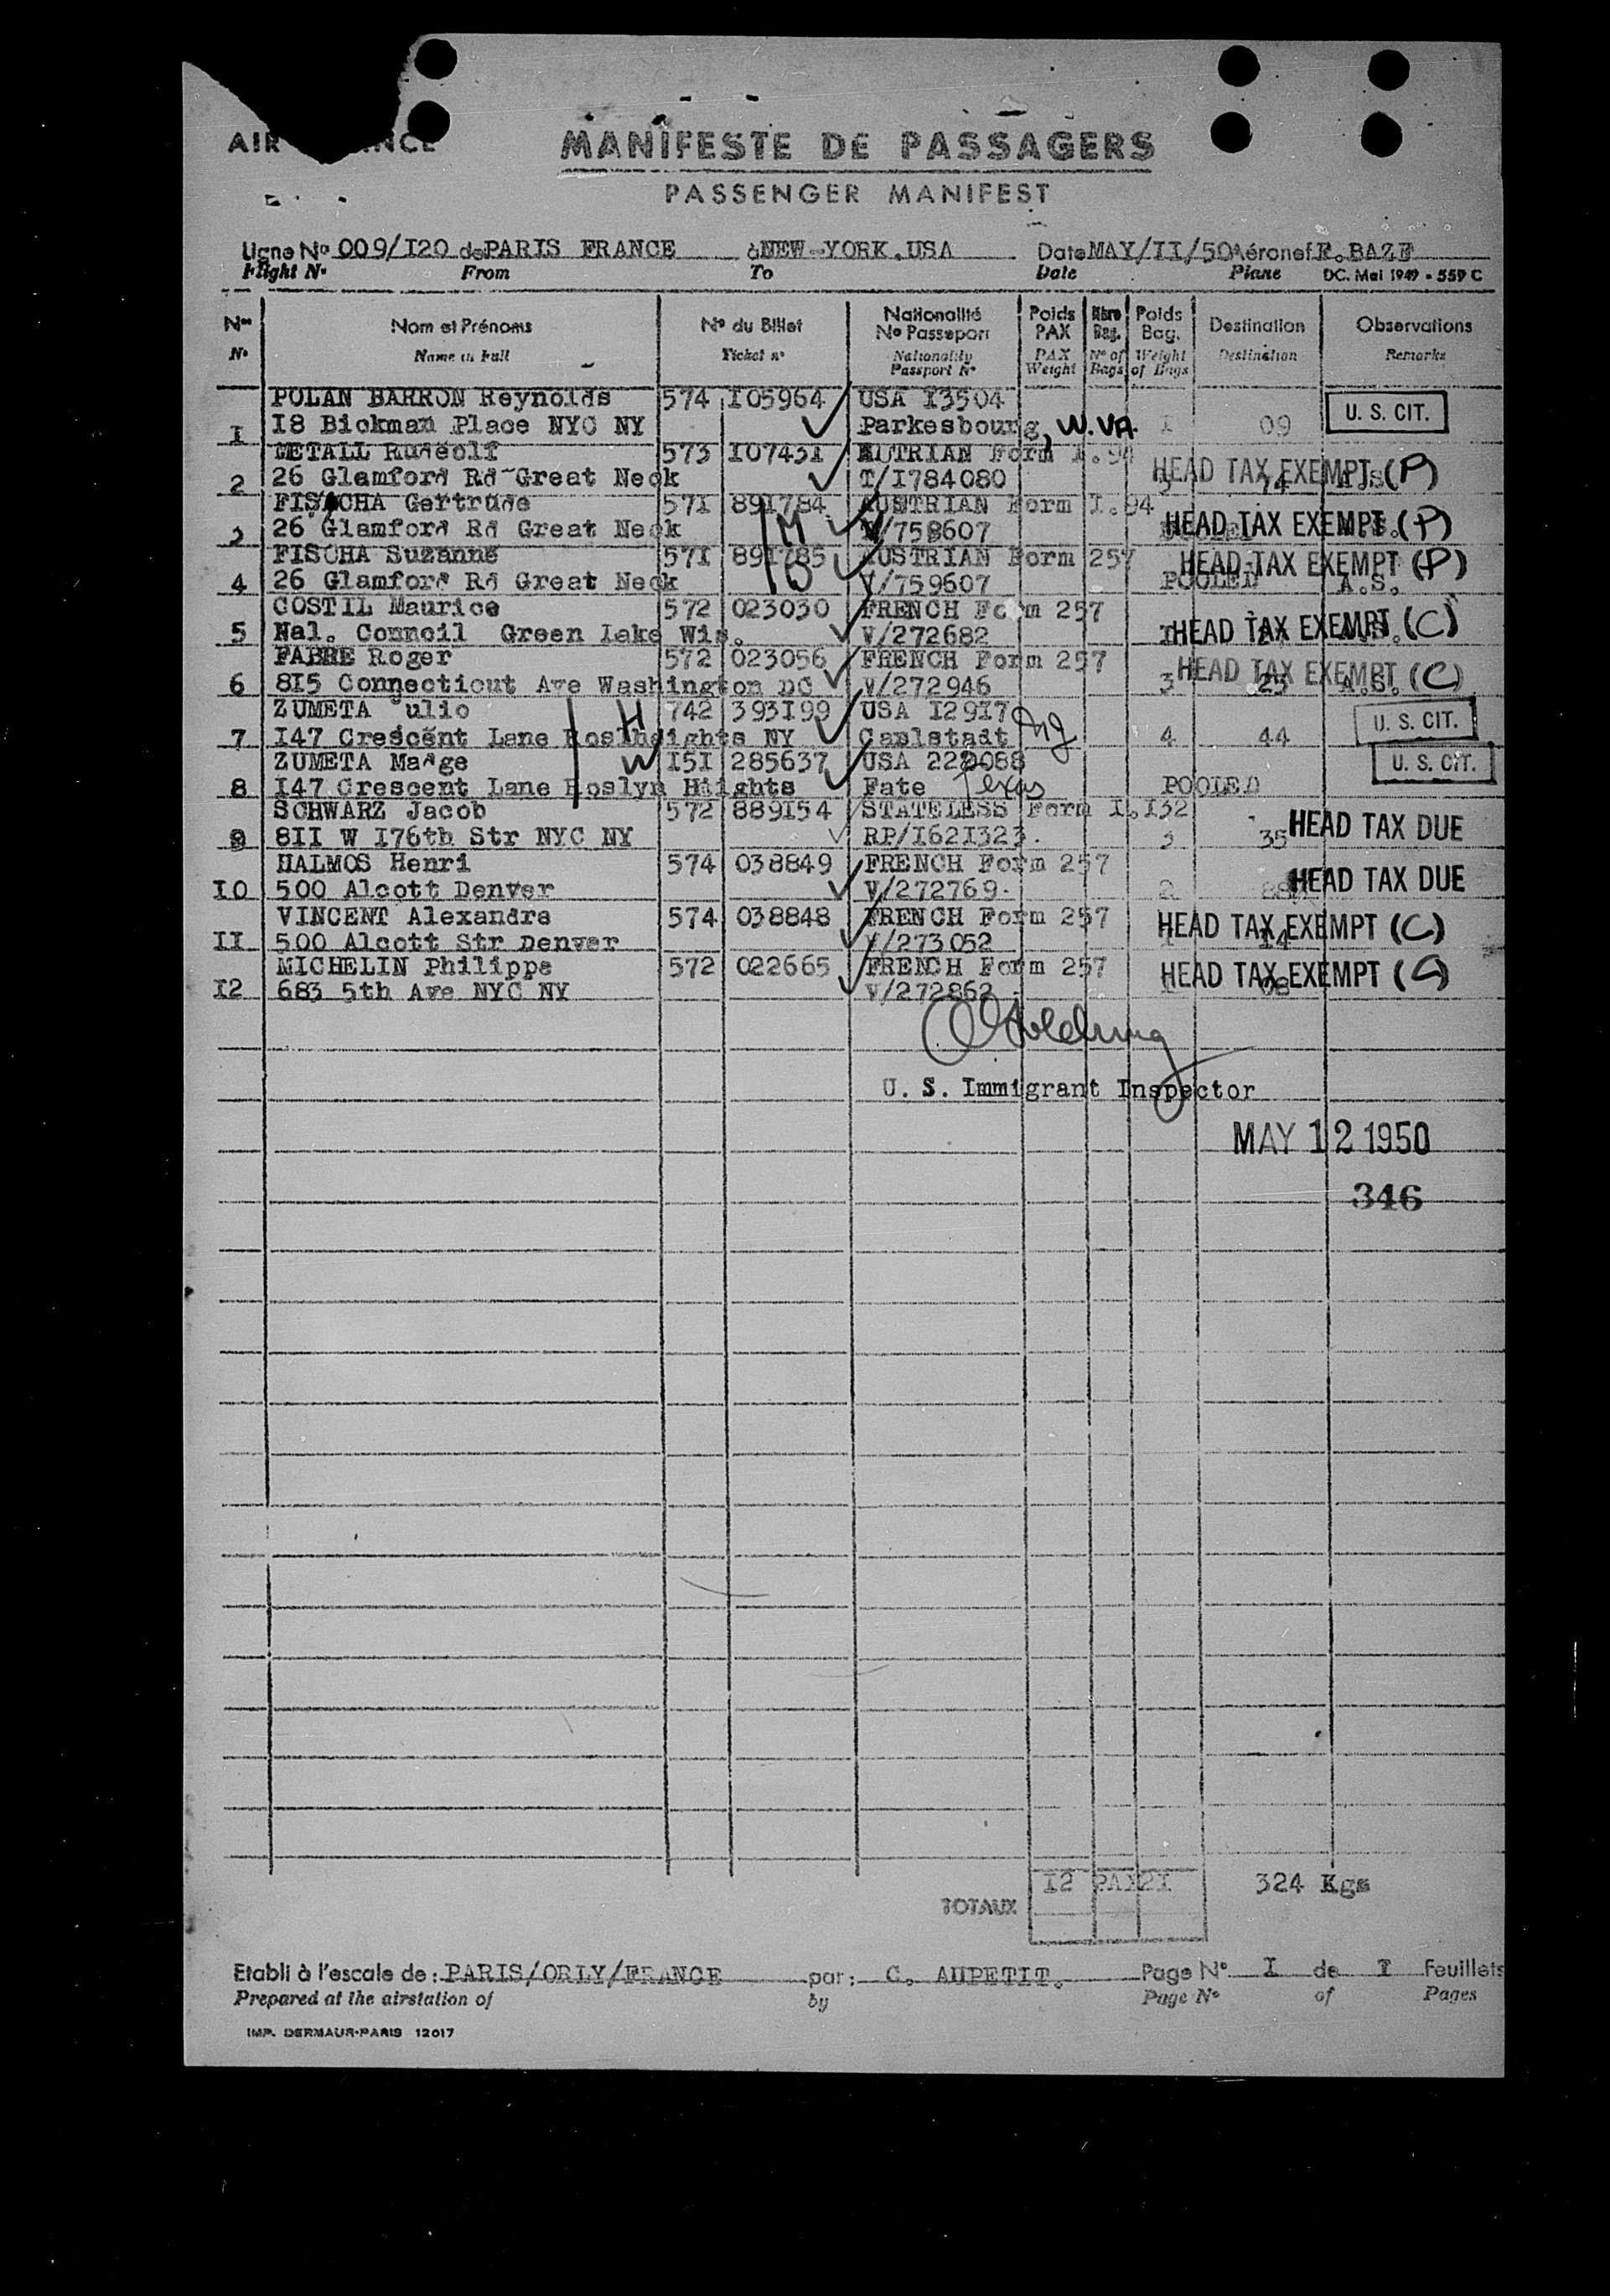 MANIFESTE DE PASSAGERS
PASSENGER MANIFEST
Ligne No 009/I20 de PARIS FRANCE à NEW-YORK.USA Date MAY/II/50 Aéronef F.BAZF
Flight No From To Date Plane DC. Mai 1949 - 559 C
Nos Nom et Prénoms No du Billet Nationalité No Passeport Poids PAX Nbre Bag. Poids Bag. Destination Observations
No Name in Full Ticket no Nationality Passport No PAX Weight No of Bags Weight of Bags Destination Remarks
POLAN BARRON Reynolds 574 I05964 USA I3504 U. S. CIT.
I I8 Bickman Place NYC NY Parkesbourg, W.VA. I 09
METALL Rudeolf 573 I0743I AUTRIAN Form I.94
2 26 Glamford Rd Great Neck T/I784080 HEAD TAX EXEMPT (P)
FISACHA Gertrude 57I 891784 AUSTRIAN Form I.94
26 Glamford Rd Great Neck M V/758607 HEAD TAX EXEMPT (P)
FISCHA Suzanne 57I 891785 AUSTRIAN Form 257 HEAD TAX EXEMPT (P)
4 26 Glamford Rd Great Neck D V/759607 POOLED A.S.
COSTIL Maurice 572 023030 FRENCH Form 257
5 Nal. Council Green Lake Wis. V/272682 HEAD TAX EXEMPT (C)
FABRE Roger 572 023056 FRENCH Form 257 HEAD TAX EXEMPT (C)
6 8I5 Connecticut Ave Washington DC V/272946 3 25 A.S.
ZUMETA Julio H 742 393I99 USA I29I7 U. S. CIT.
7 I47 Crescent Lane Roslheights NY Caplstadt NJ 4 44
ZUMETA Madge W I5I 285637 USA 222088 U. S. CIT.
8 I47 Crescent Lane Roslyn Hiights Fate Texas POOLED
SCHWARZ Jacob 572 889I54 STATELESS Form I.I32 HEAD TAX DUE
9 8II W I76th Str NYC NY RP/I62I323. 35
HALMOS Henri 574 038849 FRENCH Form 257 HEAD TAX DUE
I0 500 Alcott Denver V/272769. 2
VINCENT Alexandra 574 038848 FRENCH Form 257 HEAD TAX EXEMPT (C)
II 500 Alcott Str Denver V/273052 I4
MICHELIN Philippe 572 022665 FRENCH Form 257 HEAD TAX EXEMPT (C)
I2 683 5th Ave NYC NY V/272862 08
U. S. Immigrant Inspector
MAY 12 1950
346
TOTAUX I2 PAX 2I 324 Kgs
Etabli à l'escale de: PARIS/ORLY/FRANCE par: C. AUPETIT. Page No I de I Feuillets
Prepared at the airstation of by Page No of Pages
IMP. DERMAUR-PARIS 12017